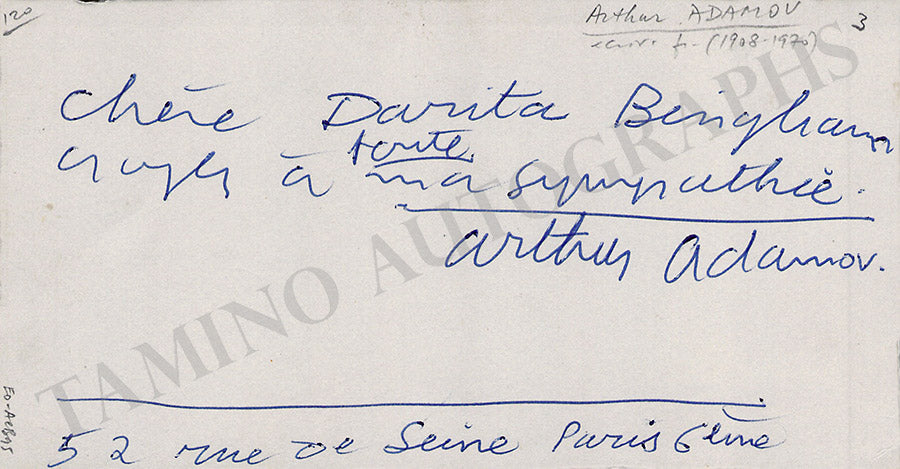 120
Arthur ADAMOV
3
(1908-1970)
Chère Darita Bengham
croyez à toute ma sympathie.
Arthur Adamov.
52 rue de Seine Paris 6ème
TAMINO AUTOGRAPHS